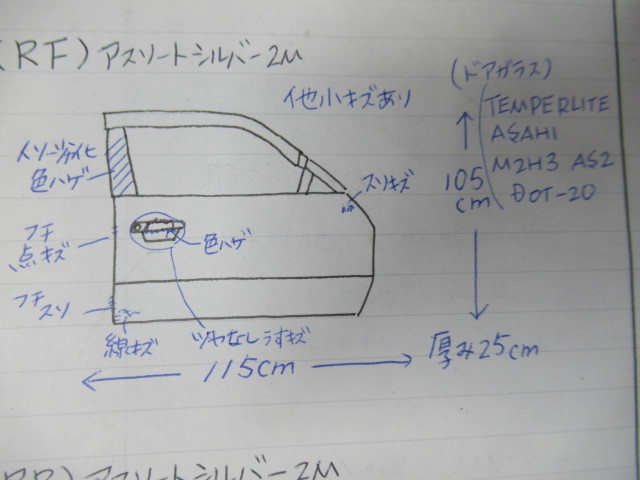 (RF) アスリートシルバー2M
他小キズあり
(ドアガラス)
TEMPERLITE
ASAHI
M2H3 AS2
DOT-20
色ハゲ
スリキズ
105
cm
フチ
点キズ
色ハゲ
フチ
スリ
線キズ
ツヤなしうすキズ
115cm
厚み25cm
アスリートシルバー2M